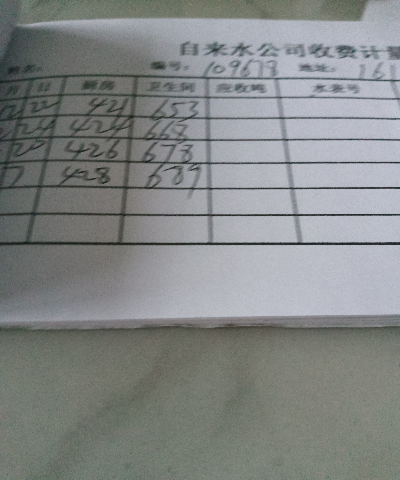 自来水公司收费计量
编号: 109678 地址: 161
月 日 厨房 卫生间 应收吨 水表号
22 421 653
24 424 668
20 426 678
7 428 689